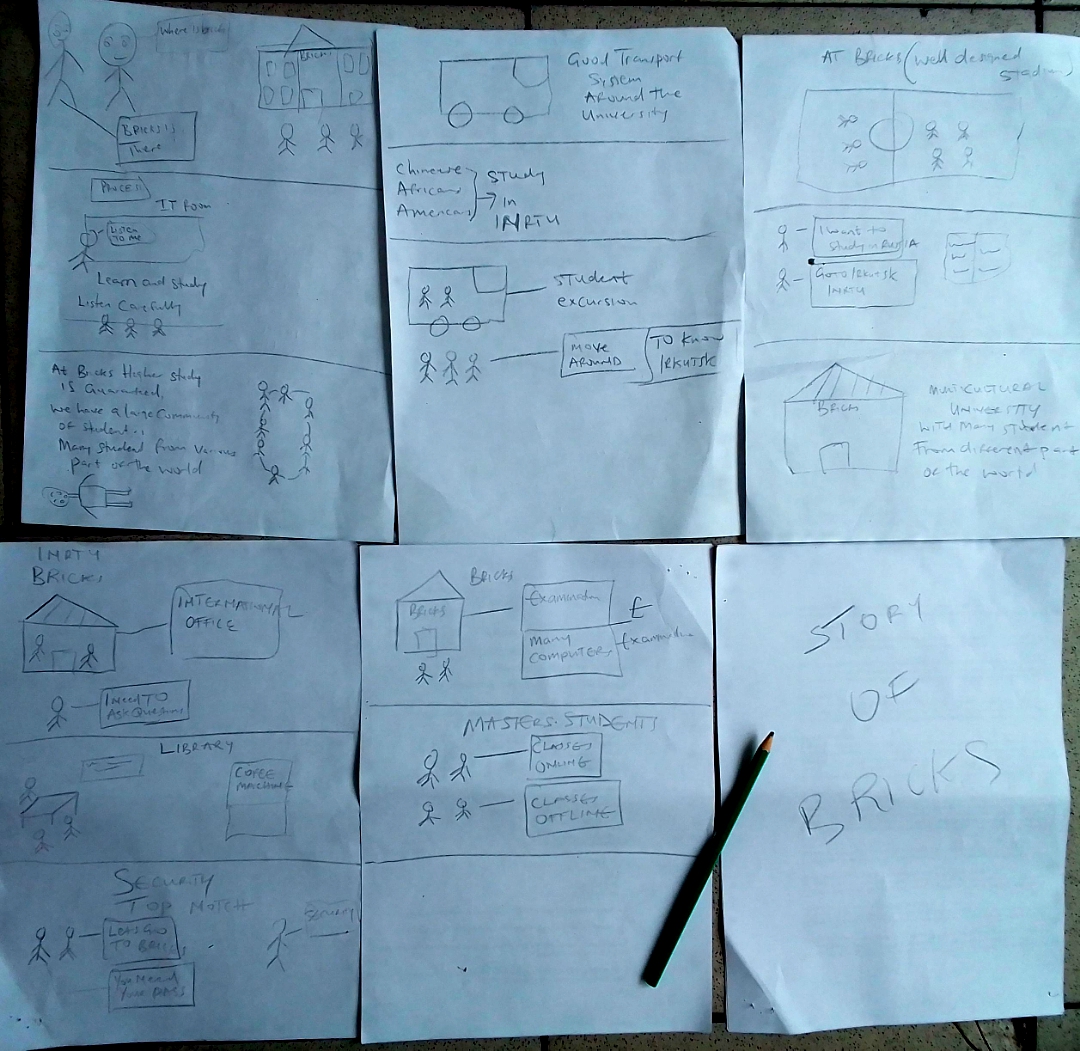 Where is
BRICKS
BRICKS IS
there
IT Room
LISTEN
TO ME
Learn and Study
Listen Carefully
At Bricks Higher Study
is Guaranteed,
we have a large Community
of student.,
Many student from various
part of the world
Good Transport
System
Around The
University
Chinese
African
American
STUDY
in
INRTU
STUDENT
excursion
MOVE
AROUND
TO KNOW
IRKUTSK
AT BRICKS (well designed
Stadium)
I want to
Study in RUSSIA
Go to IRKUTSK
INRTU
BRICKS
MULTICULTURAL
UNIVERSITY
WITH MANY STUDENT
From different part
of the world
INRTU
BRICKS
INTERNATIONAL
OFFICE
I need TO
Ask Questions
LIBRARY
COFEE
MACHINE
SECURITY
TOP NOTCH
LETS GO
TO BRICKS
SECURITY
You Need
Your PASS
BRICKS
BRICKS
Examination
MANY
COMPUTERS
E
Examination
MASTERS STUDENTS
CLASSES
ONLINE
CLASSES
OFFLINE
STORY
OF
BRICKS